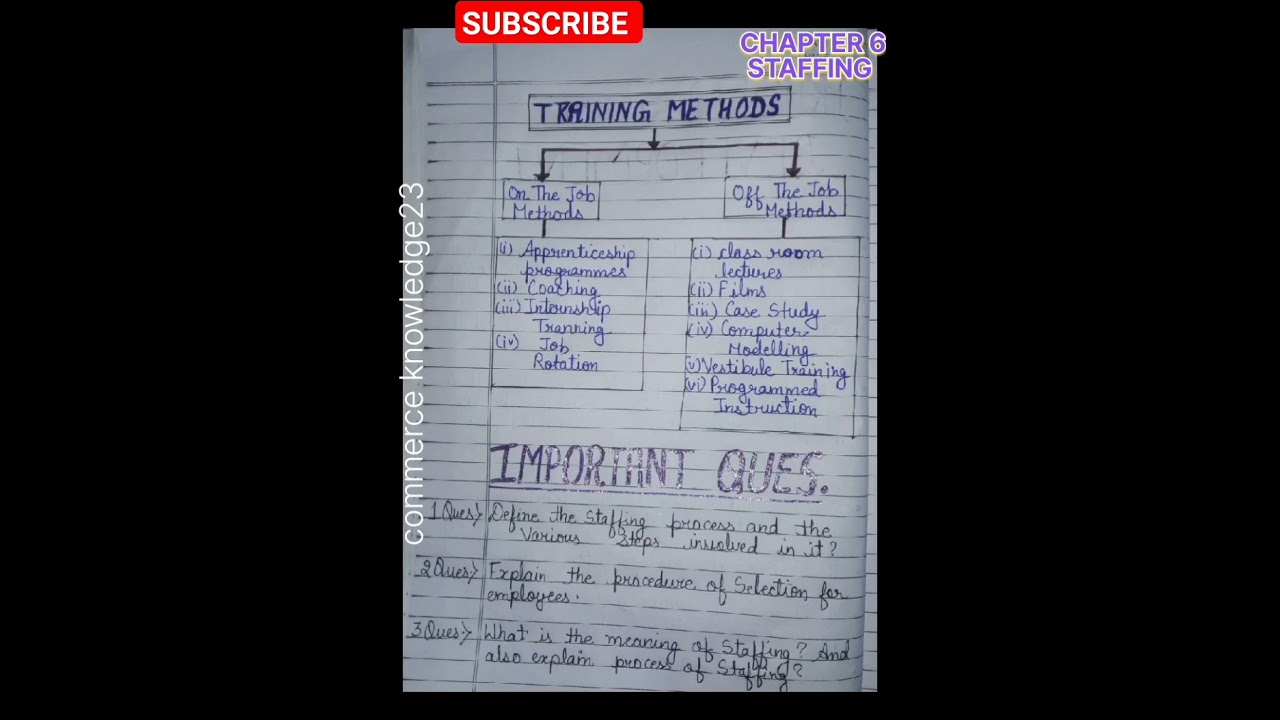 SUBSCRIBE
CHAPTER 6
STAFFING
commerce knowledge23
TRAINING METHODS
On The Job
Methods
Off The Job
Methods
(i) Apprenticeship
programmes
(ii) Coaching
(iii) Internship
Tranning
(iv) Job
Rotation
(i) class room
lectures
(ii) Films
(iii) Case Study
(iv) Computer
Modelling
(v) Vestibule Training
(vi) Programmed
Instruction
IMPORTANT QUES.
1 Ques:> Define the Staffing process and the
various steps involved in it?
2 Ques:> Explain the procedure of Selection for
employees.
3 Ques:> What is the meaning of Staffing? And
also explain process of Staffing?